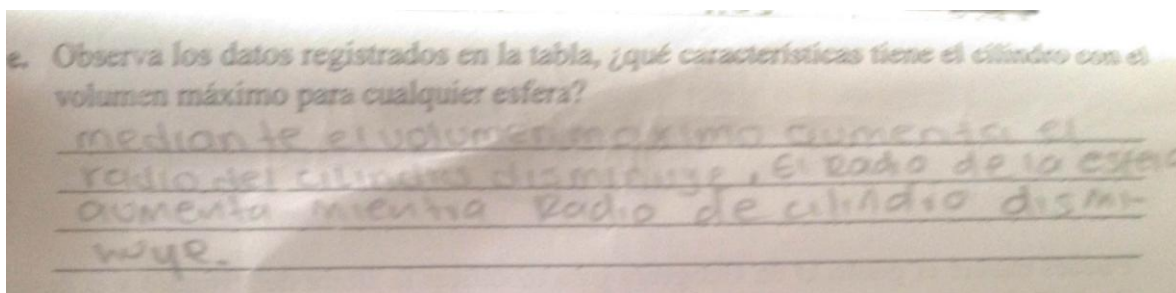 e. Observa los datos registrados en la tabla, ¿qué características tiene el cilindro con el
volumen máximo para cualquier esfera?
mediante el volumen maximo aumenta el
radio del cilindro disminuye, El Radio de la esfera
aumenta mientra Radio de cilindro dismi-
nuye.